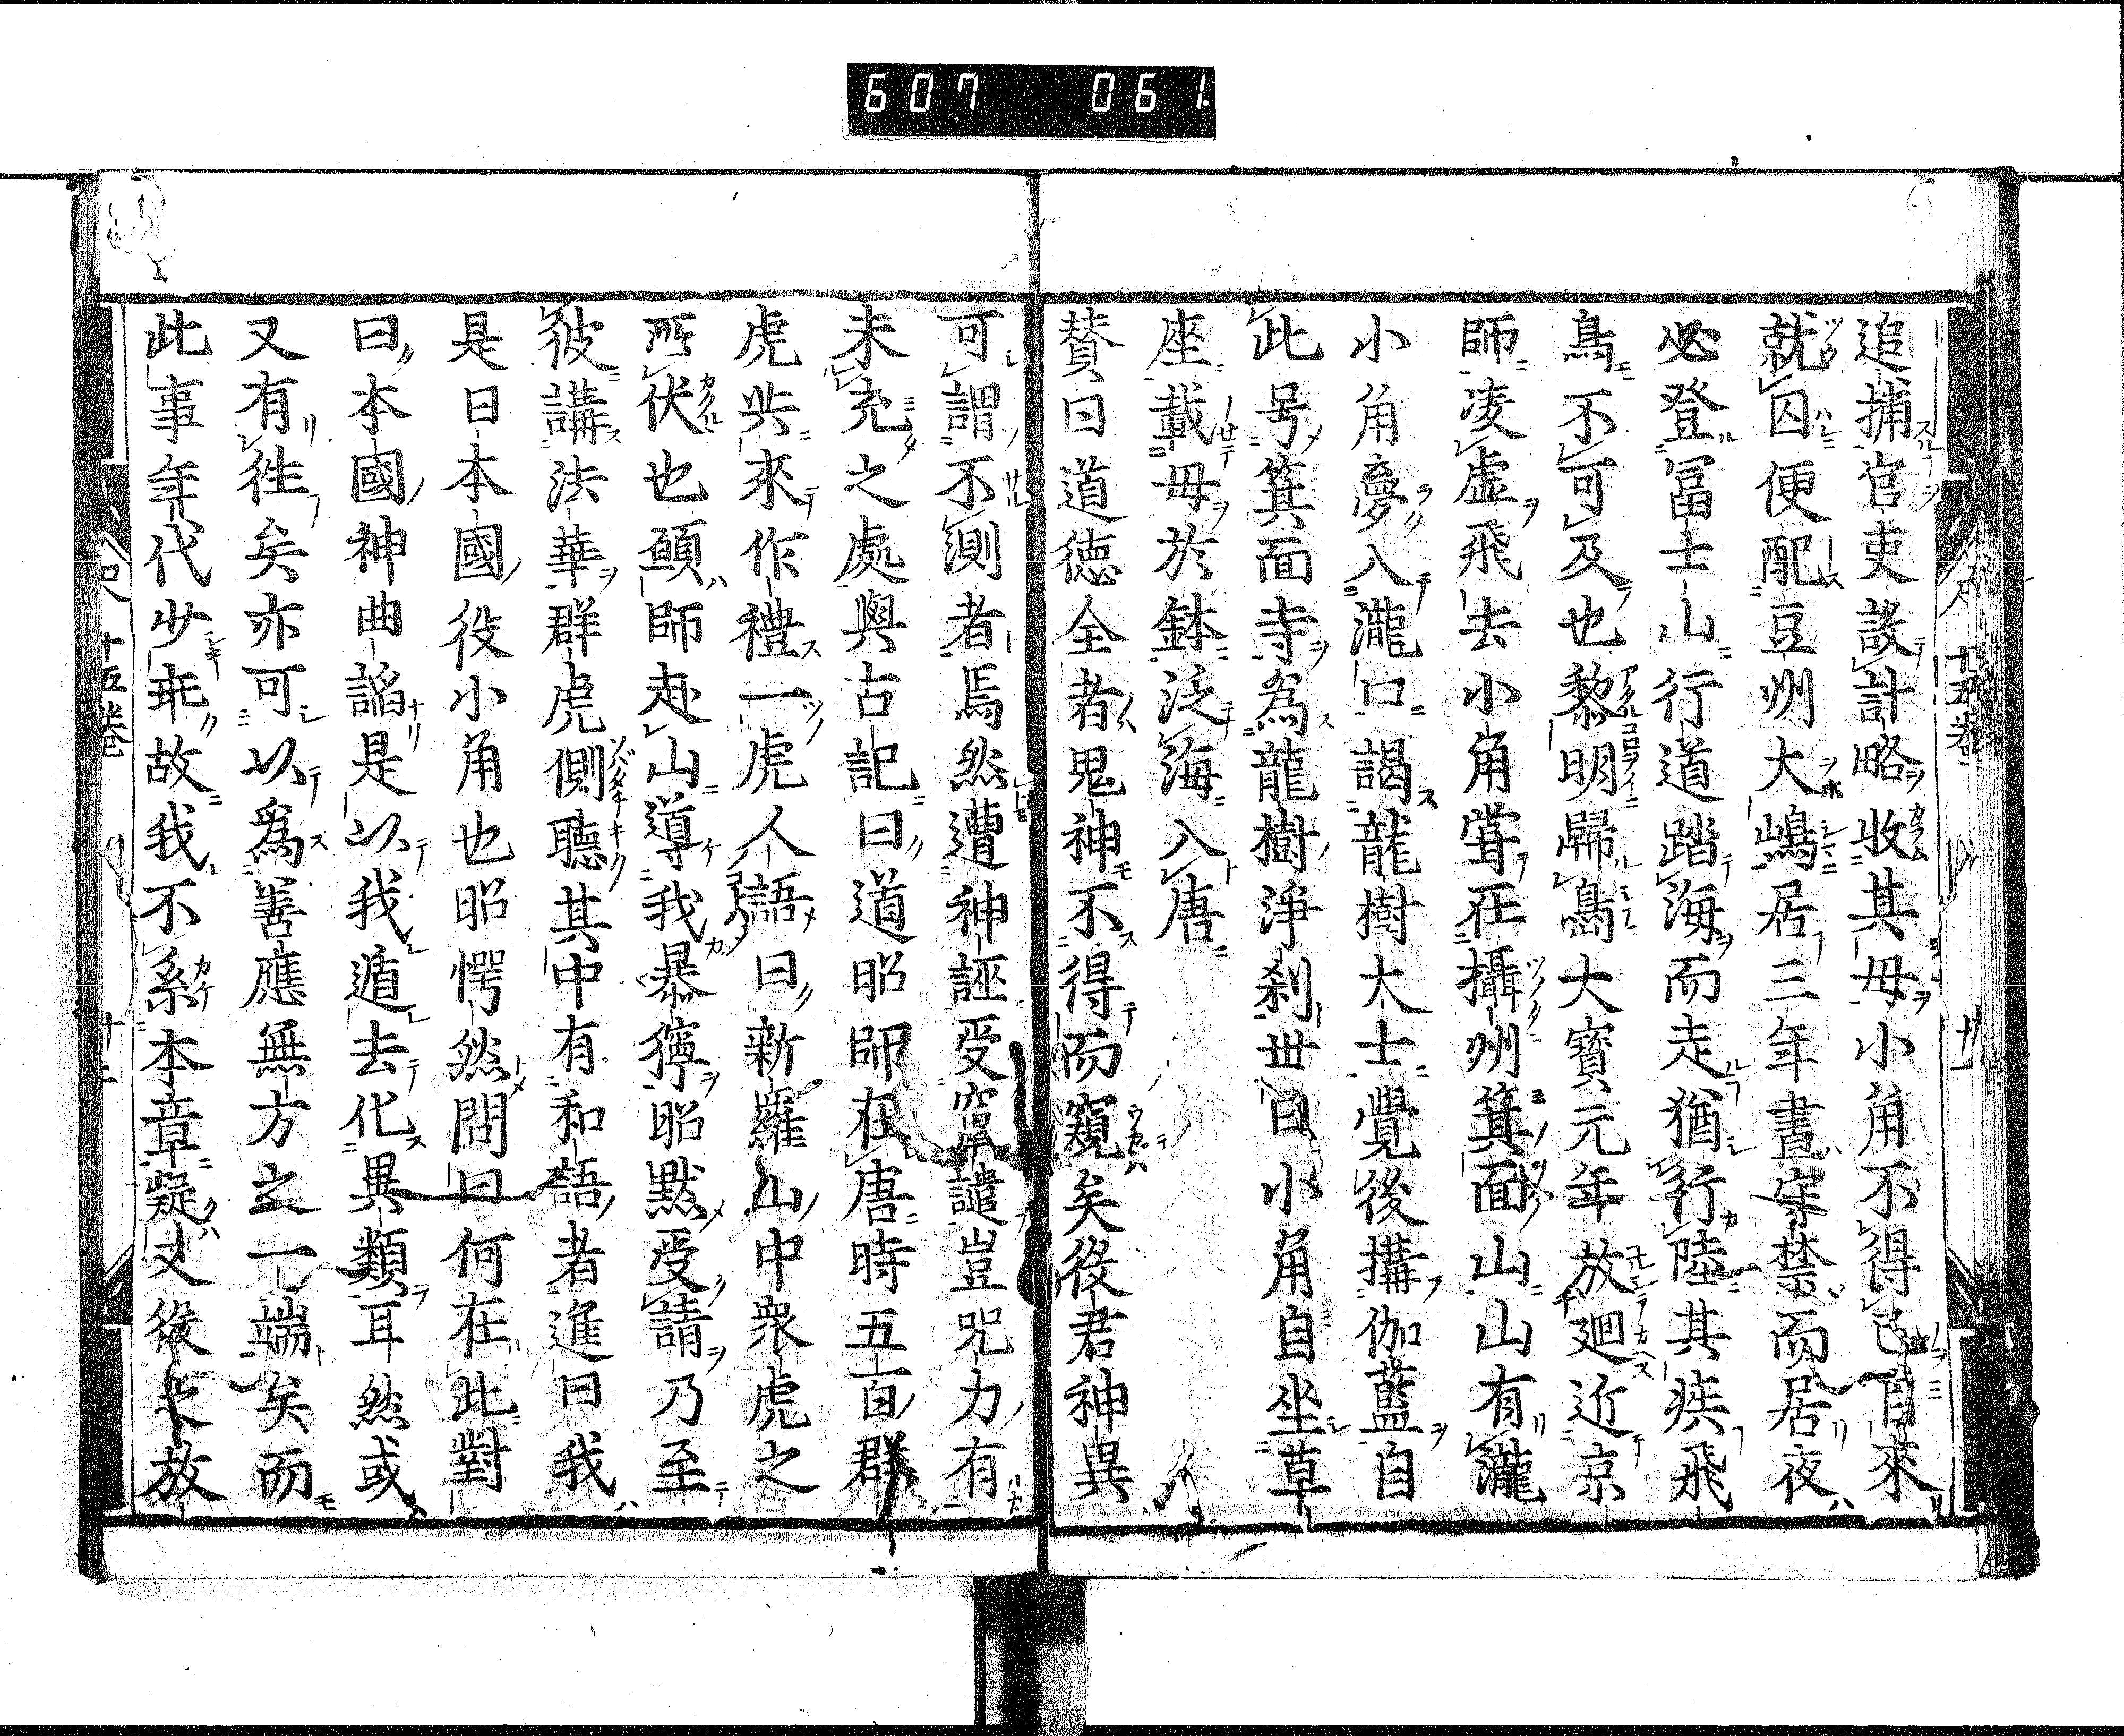 607 061
追捕官吏設計略收其母小角不得已自來
就囚便配豆州大嶋居三年晝守禁而居夜
必登冨士山行道踏海而走猶行陸其疾飛
鳥不可及也黎明歸嶋大寶元年放廻近京
師凌虚飛去小角甞在攝州箕面山山有瀧
小角夢入瀧口謁龍樹大士覺後搆伽藍自
此号箕面寺為龍樹淨刹世曰小角自坐草
座載母於鉢泛海入唐
賛曰道德全者鬼神不得而窺矣役君神異
可謂不測者焉然遭神誣受竄譴豈咒力有
未充之處與古記曰道昭師在唐時五百群
虎共來作禮一虎人語曰新羅山中衆虎之
所伏也願師赴山導我暴獰昭默受請乃至
彼講法華群虎側聽其中有和語者進曰我
是日本國役小角也昭愕然問曰何在此對
曰本國神曲諂是以我遁去化異類耳然或
又有徃矣亦可以為善應無方之一端矣而
此事年代少乖故我不系本章疑丈後之放
十五卷
十五卷